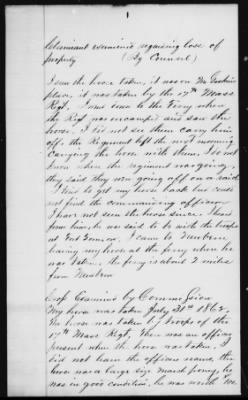 Claimant examined regarding loss of
property (By Counsel)
I saw the horse taken, it was on Mr
place, it was taken by the 17th Mass
Regt. I went down to the Ferry where
the Regt was encamped and saw the
horse, I did not see them carry him
off, the Regiment left the next morning
carrying the horse with them. I do not
know where the regiment was going,
they said they were going off on a raid
I tried to get my horse back but could
not find the commanding officer.
I have not seen the horse since. I heard
from him, he was said to be with the troops
at Fort. I came to Newbern
leaving my horse at the ferry when he
was taken. The ferry is about 2 miles
from Newbern
Examined by Commission
My horse was taken July 31st 1862.
The horse was taken by troops of the
17th Mass Regt. There was an officer
present when the horse was taken. I
did not learn the officers name, the
horse was a large size, he
was in good condition, he was worth